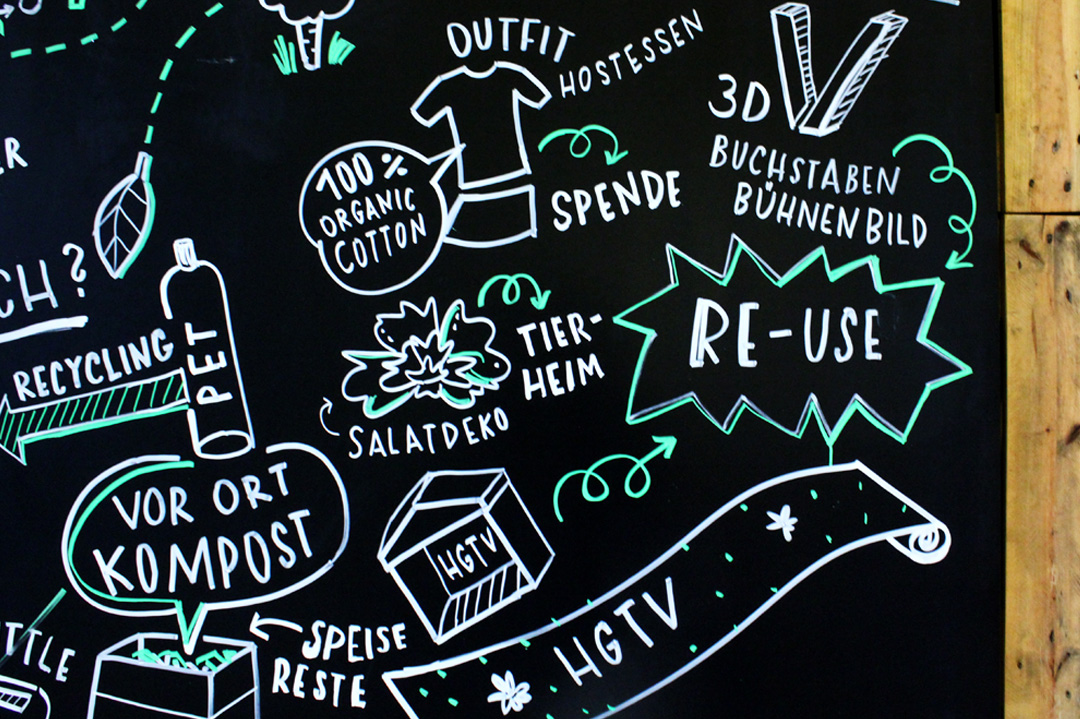 OUTFIT
HOSTESSEN
100 %
ORGANIC
COTTON
SPENDE
3D
BUCHSTABEN
BÜHNENBILD
RE-USE
TIER-
HEIM
SALATDEKO
RECYCLING
PET
VOR ORT
KOMPOST
SPEISE
RESTE
HGTV
HGTV